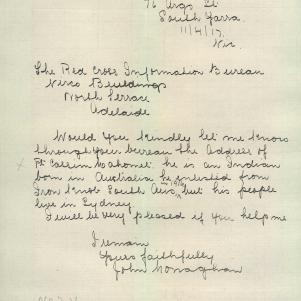 76 Argo St
South Yarra
11/4/17.
Vic.
The Red Cross Information Bureau
Verco Buildings
North Terrace
Adelaide
Would you kindly let me know
through your bureau the Address of
Pt Carrim Mahomet. he is an Indian
born in Australia he enlisted from
Iron Knob South Aus in 1916 but his people
live in Sydney
I will be very pleased if you help me
I remain
Yours faithfully
John Monaghan